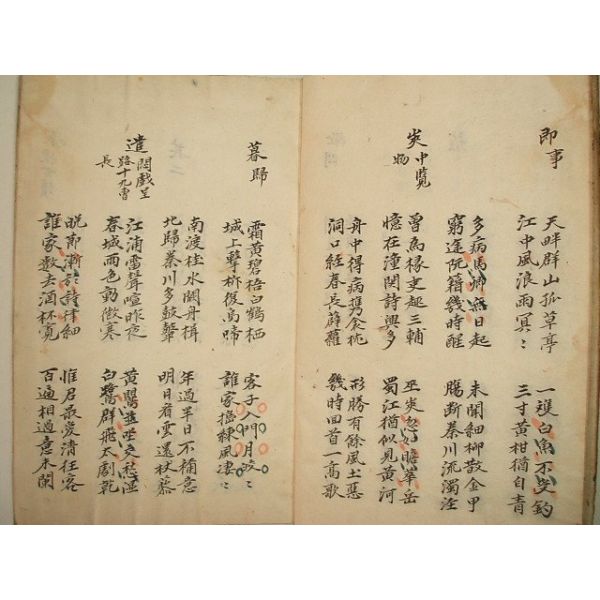 即事
天畔群山孤草亭
江中風浪雨冥〻
一雙白魚不受釣
三寸黃柑猶自青
多病馬卿無日起
窮途阮籍幾時醒
未聞細柳散金甲
腸斷秦川流濁涇
夾中覽物
曾為掾吏趨三輔
憶在潼関詩興多
巫夾忽如瞻華岳
蜀江猶似見黃河
舟中得病移衾枕
洞口經春長薜蘿
形勝有餘風土惡
幾時回首一高歌
暮歸
霜黃碧梧白鶴栖
城上擊柝復烏啼
客子入門月皎〻
誰家搗練風凄〻
南渡桂水闕舟楫
北歸秦川多鼓鼙
年過半百不稱意
明日看雲還杖藜
遣悶戲呈路十九曹長
江浦雷聲喧昨夜
春城雨色動微寒
黃鸝並坐交愁溼
白鷺群飛太劇乾
晚節漸於詩律細
誰家數去酒杯寬
惟君最愛清狂客
百遍相過意未闌